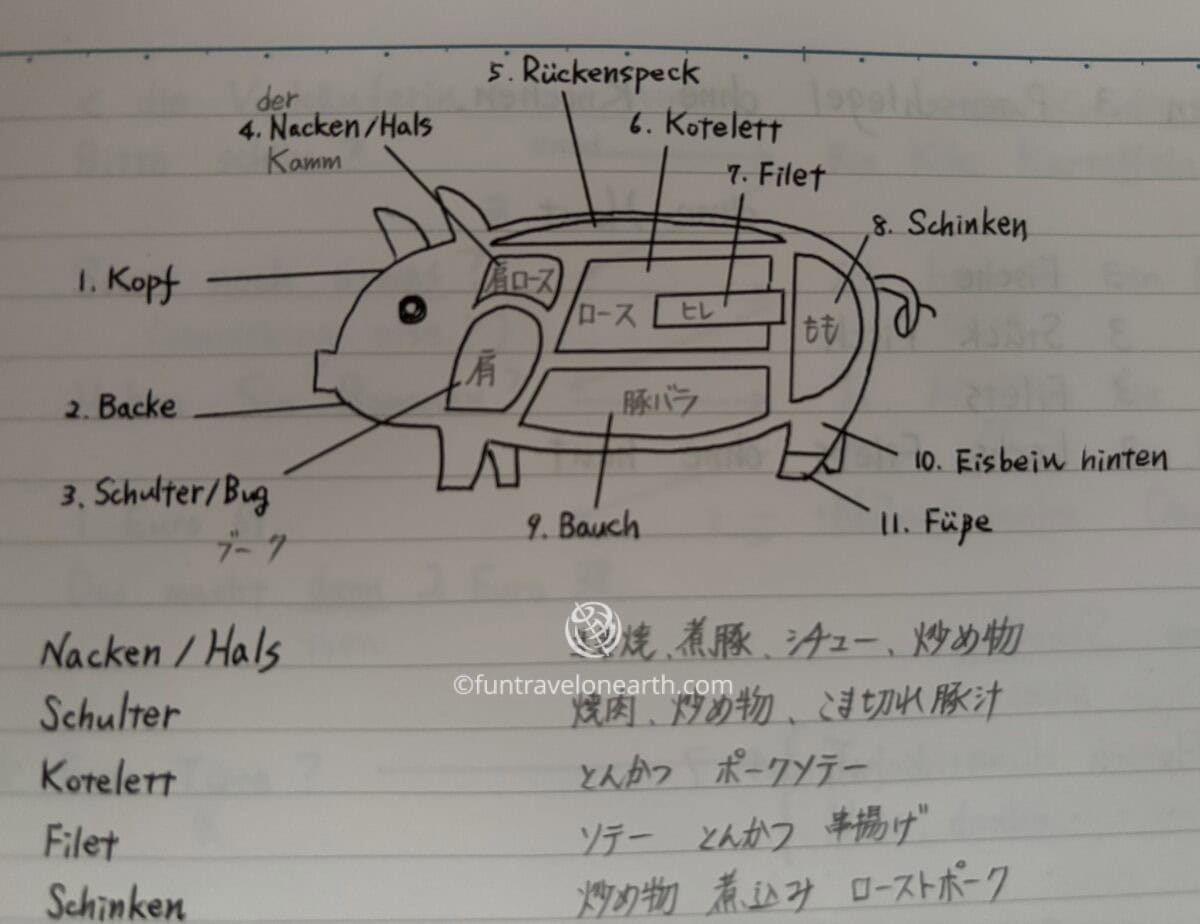 5. Rückenspeck
der
4. Nacken/Hals
Kamm
6. Kotelett
7. Filet
8. Schinken
1. Kopf
肩ロース
ロース
ヒレ
もも
肩
2. Backe
豚バラ
10. Eisbein hinten
3. Schulter/Bug
ブーク
9. Bauch
11. Füße
Nacken / Hals 焼、煮豚、シチュー、炒め物
©funtravelonearth.com
Schulter 焼肉、炒め物、こま切れ豚汁
Kotelett とんかつ ポークソテー
Filet ソテー とんかつ 串揚げ
Schinken 炒め物 煮込み ローストポーク